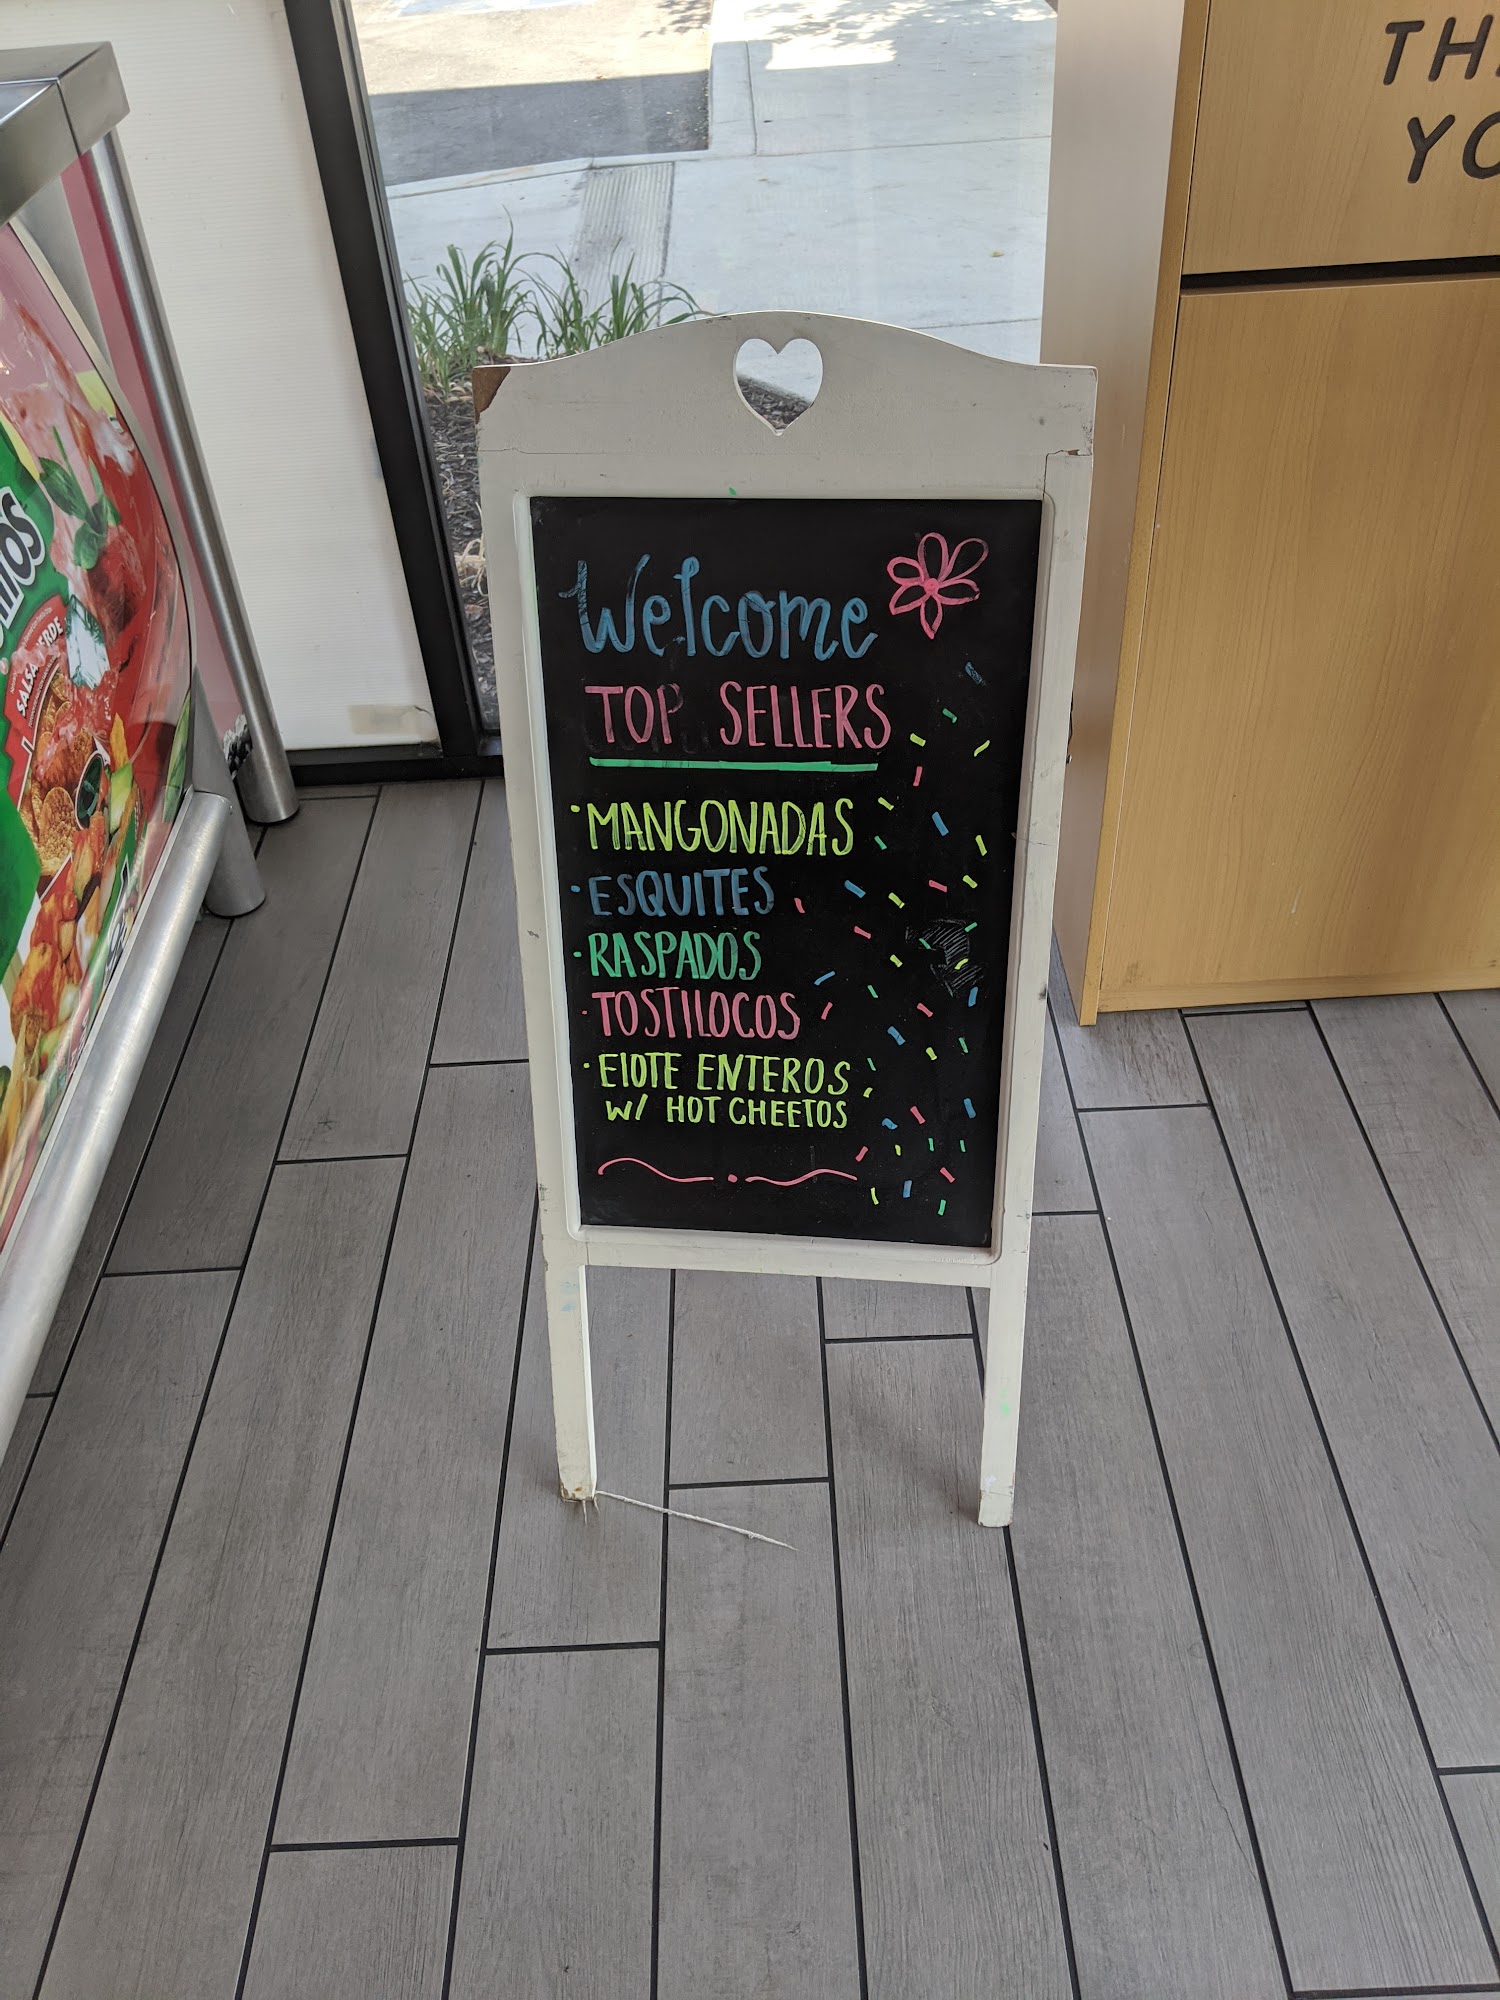 TH
YO
SALSA VERDE
Welcome
TOP SELLERS
·MANGONADAS
·ESQUITES
·RASPADOS
·TOSTILOCOS
·ElOTE ENTEROS
W/ HOT CHEETOS